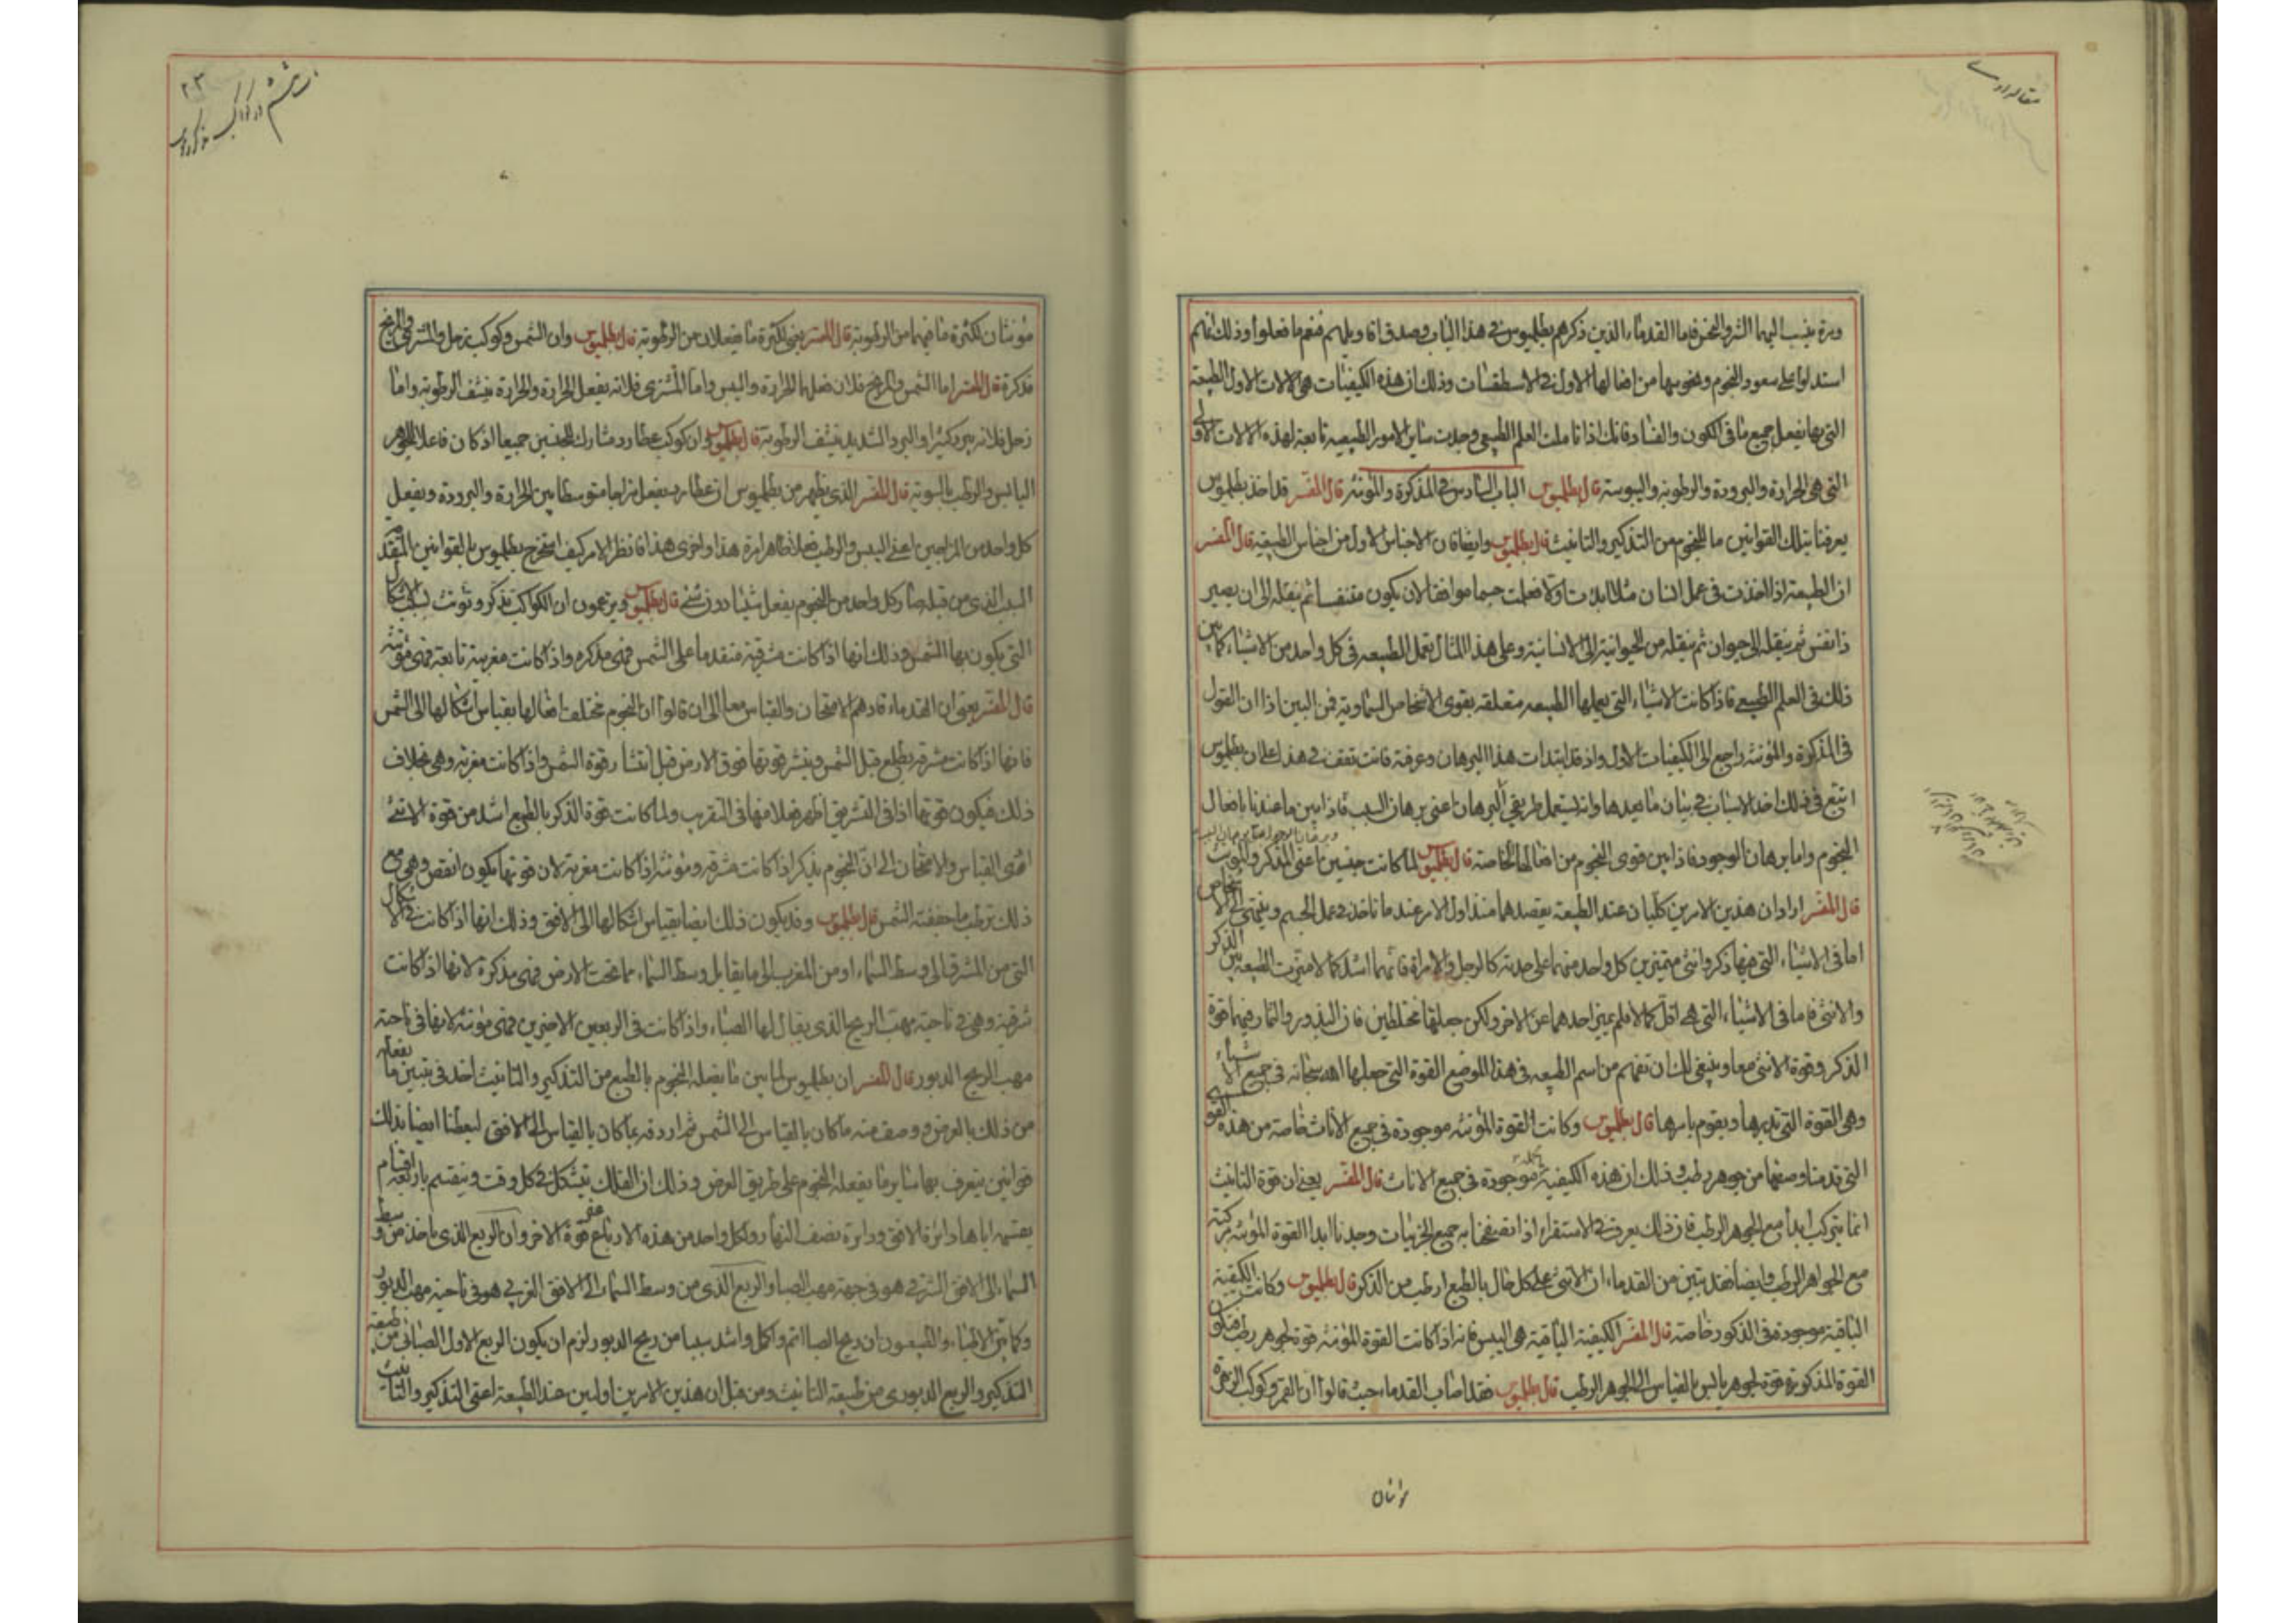 مقاله اول
وبرة ينسب اليها الشر والنحس فاما القدماء الذين ذكرهم بطلميوس في هذا الباب وصدق اقاويلهم فنعم ما فعلوا وذلك انهم
استدلوا على سعود النجوم ونحوسها من افعالها الاول في الاسطقسات وذلك ان هذه الكيفيات هي الآلات الاول الطبيعة
التي بها يفعل جميع ما في الكون والفساد فانك اذا تاملت العلم الطبيعي وجدت ساير الامور الطبيعيه تابعة لهذه الالات الاولى
التي هي الحرارة والبرودة والرطوبة واليبوسة قال بطلميوس الباب السادس في المذكرة والمؤنثه قال المفسر قد اخذ بطلميوس
يعرفنا بتلك القوانين ما للنجوم من التذكير والتانيث قال بطلميوس وايضا فان الاجناس الاول من اجناس الطبيعة قال المفسر
ان الطبيعة اذا اخذت في عمل انسان مثلا ابتدات اولا فعملت جسما موافقا لان يكون متنفسا ثم ينقله الى ان يصير
ذا نفس ثم ينقله الى حيوان ثم ينقله من الحيوانية الى الانسانية وعلى هذا المثال تعمل الطبيعه في كل واحد من الاشياء كما بين
ذلك في العلم الطبيعي فاذا كانت الاشياء التي يعملها الطبيعه متعلقه بقوى الاشخاص السماوية فمن البين اذا ان القول
في المذكرة والمؤنثه راجع الى الكيفيات الاول واذ قد ابتدات هذا البرهان وعرفته فانت تقف في هذا على ان بطلميوس
اتبع في ذلك اخذ الاسباب في بيان ما بعدها وانه يستعمل طريقي البرهان اعني برهان السبب فاذا بين ما عندنا بافعال
النجوم واما برهان الوجود فاذا بين قوى النجوم من افعالها الخاصة قال بطلميوس لما كانت جنسين اعني المذكر والمؤنث
قال المفسر اراد ان هذين الامرين كليان عند الطبيعة يقصدهما منذ اول الامر عند ما تاخذ في عمل الجسم وينتهي الى الاشخاص
اما في الاشياء التي فيها ذكر وانثى متميزين كل واحد منهما على حدته كالرجل والامراة فانهما اشد كمالا ميزت الطبيعة بين الذكر
والانثى فاما في الاشياء التي هي اقل كمالا فلم يميز احدهما عن الاخر ولكن جعلتها مختلطين فان البذور والثمار فيهما قوة
الذكر وقوة الانثى معا وينبغي لك ان تفهم من اسم الطبيعه في هذا الموضع القوة التي جعلها الله سبحانه في جميع الاشياء
وهي القوة التي تدبرها ويقوم بامرها قال بطلميوس وكانت القوة المؤنثه موجودة في جميع الاناث خاصة من هذه القوى
التي قدمنا وصفها من جوهر رطب وذلك ان هذه الكيفية موجودة في جميع الاناث قال المفسر يعني ان قوة التانيث
انما يتركب ابدا مع الجوهر الرطب فان ذلك يعرف في الاستقراء اذا تصفحنا به جميع الجزئيات وجدنا ابدا القوة المؤنثه مركبة
مع الجواهر الرطب وايضا فقد بين من القدماء ان الانثى على كل حال بالطبع ارطب من الذكر قال بطلميوس وكانت الكيفية
الباقية موجودة في الذكور خاصة قال المفسر الكيفية الباقية هي اليبس فانه اذا كانت القوة المؤنثه قوة لجوهر رطب فيكون
القوة المذكورة قوة لجوهر يابس بالقياس الى الجوهر الرطب قال بطلميوس فقد اصاب القدماء حيث قالوا ان القمر وكوكب الزهرة
مؤنثان
۲۰۳
مؤنثان لكثرة ما فيهما من الرطوبة قال المفسر يعني لكثرة ما يفعلان من الرطوبة قال بطلميوس وان الشمس وكوكب زحل والمشتري والمريخ
مذكرة قال المفسر اما الشمس والمريخ فلان فعلهما الحرارة واليبس واما المشتري فلانه يفعل الحرارة والحرارة ينشف الرطوبة واما
زحل فلانه يبرد كثيرا والبرد الشديد ينشف الرطوبة قال بطلميوس وان كوكب عطارد مشارك للجنسين جميعا اذ كان فاعلا للجوهر
اليابس والرطب بالسوية قال المفسر الذي يظهر من بطلميوس ان عطارد يفعل مزاجا متوسطا بين الحرارة والبرودة ويفعل
كل واحد من المزاجين اعني اليبس والرطب فعلا ظاهرا مرة هذا واخرى هذا فانظر الامر كيف استخرج بطلميوس بالقوانين المتقدم
السبب الذي من قبله صار كل واحد من النجوم يفعل شيئا دون شئ قال بطلميوس ويزعمون ان الكواكب تذكر وتونث بسبب الاشكال
التي يكون بها الشمس وذلك انها اذا كانت مشرقية متقدما على الشمس فهى مذكره واذا كانت مغربية تابعة فهى مؤنثه
قال المفسر يعني ان القدماء قادهم الامتحان والقياس معا الى ان قالوا ان النجوم تختلف افعالها بقياس اشكالها الى الشمس
فانها اذا كانت مشرقة يطلع قبل الشمس وينشر قوتها فوق الارض قبل انتشار قوة الشمس واذا كانت مغربة وهي بخلاف
ذلك فيكون قوتها اذا في التشريق اظهر فعلا منها في التغريب ولما كانت قوة الذكر بالطبع اشد من قوة الانثى
افضى القياس والامتحان الى ان النجوم يذكر اذا كانت مشرقه ومؤنثه اذا كانت مغربة لان قوتها يكون انقص وهي مع
ذلك ترطب ما جففته الشمس قال بطلميوس وقد يكون ذلك ايضا بقياس اشكالها الى الافق وذلك انها اذا كانت في الاشكال
التي من المشرق الى وسط السماء او من المغرب الى ما يقابل وسط السماء مما تحت الارض فهى مذكرة لانها اذا كانت
شرقية وهي في ناحية مهب الريح الذي يقال لها الصباء واذا كانت في الربعين الاخيرين فهى مؤنثه لانها في ناحية
مهب الريح الدبور قال المفسر ان بطلميوس لما بين ما يفعله النجوم بالطبع من التذكير والتانيث اخذ في تبيين ما يفعله
من ذلك بالعرض ووصف منه ما كان بالقياس الى الشمس ثم اردفه بما كان بالقياس الى الافق ليعطنا ايضا بذلك
قوانين يتعرف بها ساير ما يفعله النجوم على طريق العرض وذلك ان الفلك يتشكل في كل وقت وينقسم باربعة اقسام
يقسمه اياها دائرة الافق ودايرة نصف النهار ولكل واحد من هذه الارباع قوة الاخر وان الربع الذي ياخذ من وسط
السماء الى الافق الشرقي هو في جهة مهب الصبا والربع الذي من وسط السماء الى الافق الغربي هو في ناحية مهب الدبور
وكما بين الاطباء والطبيعيون ان ريح الصبا اتم واكمل واشد يبسا من ريح الدبور لزم ان يكون الربع الاول الصبائي من طبيعة
التذكير والربع الدبوري من طبيعة التانيث ومن قبل ان هذين الامرين اولين عند الطبيعة اعني التذكير والتانيث